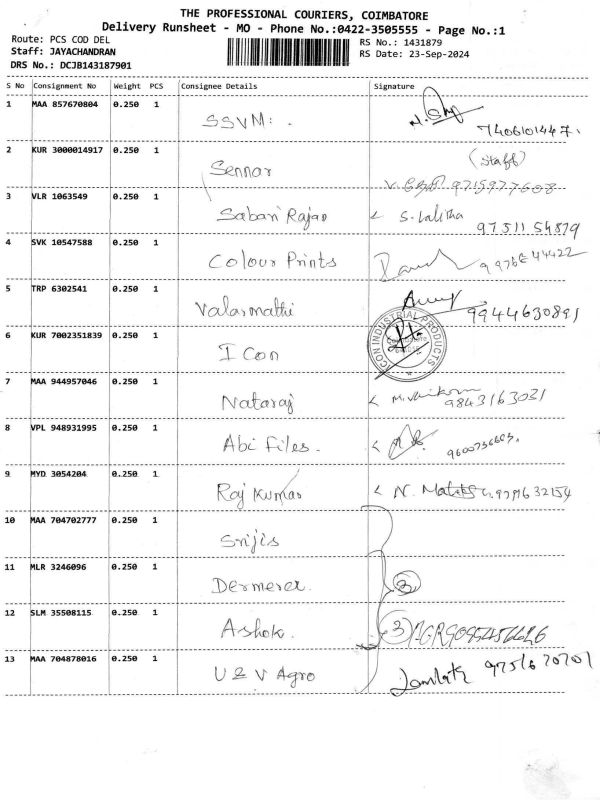 THE PROFESSIONAL COURIERS, COIMBATORE
Delivery Runsheet - MO - Phone No.:0422-3505555 - Page No.:1
Route: PCS COD DEL
Staff: JAYACHANDRAN
DRS No.: DCJB143187901
RS No.: 1431879
RS Date: 23-Sep-2024
S No Consignment No Weight PCS Consignee Details Signature
1 MAA 857670804 0.250 1 SSVM:. 
2 KUR 3000014917 0.250 1 Sennar (Staff) 9715977608
3 VLR 1063549 0.250 1 Sabari Rajan S. Lalitha 97511 54879
4 SVK 10547588 0.250 1 Colour Prints
5 TRP 6302541 0.250 1 Valarmathi 9944630891
6 KUR 7002351839 0.250 1 I Con ICON INDUSTRIAL PRODUCTS
7 MAA 944957046 0.250 1 Nataraj 9843163031
8 VPL 948931995 0.250 1 Abi Files.
9 MYD 3054204 0.250 1 Raj Kumar N.
10 MAA 704702777 0.250 1 Srijis
11 MLR 3246096 0.250 1 Dermerex. 3
12 SLM 35508115 0.250 1 Ashok. 3
13 MAA 704878016 0.250 1 U & V Agro